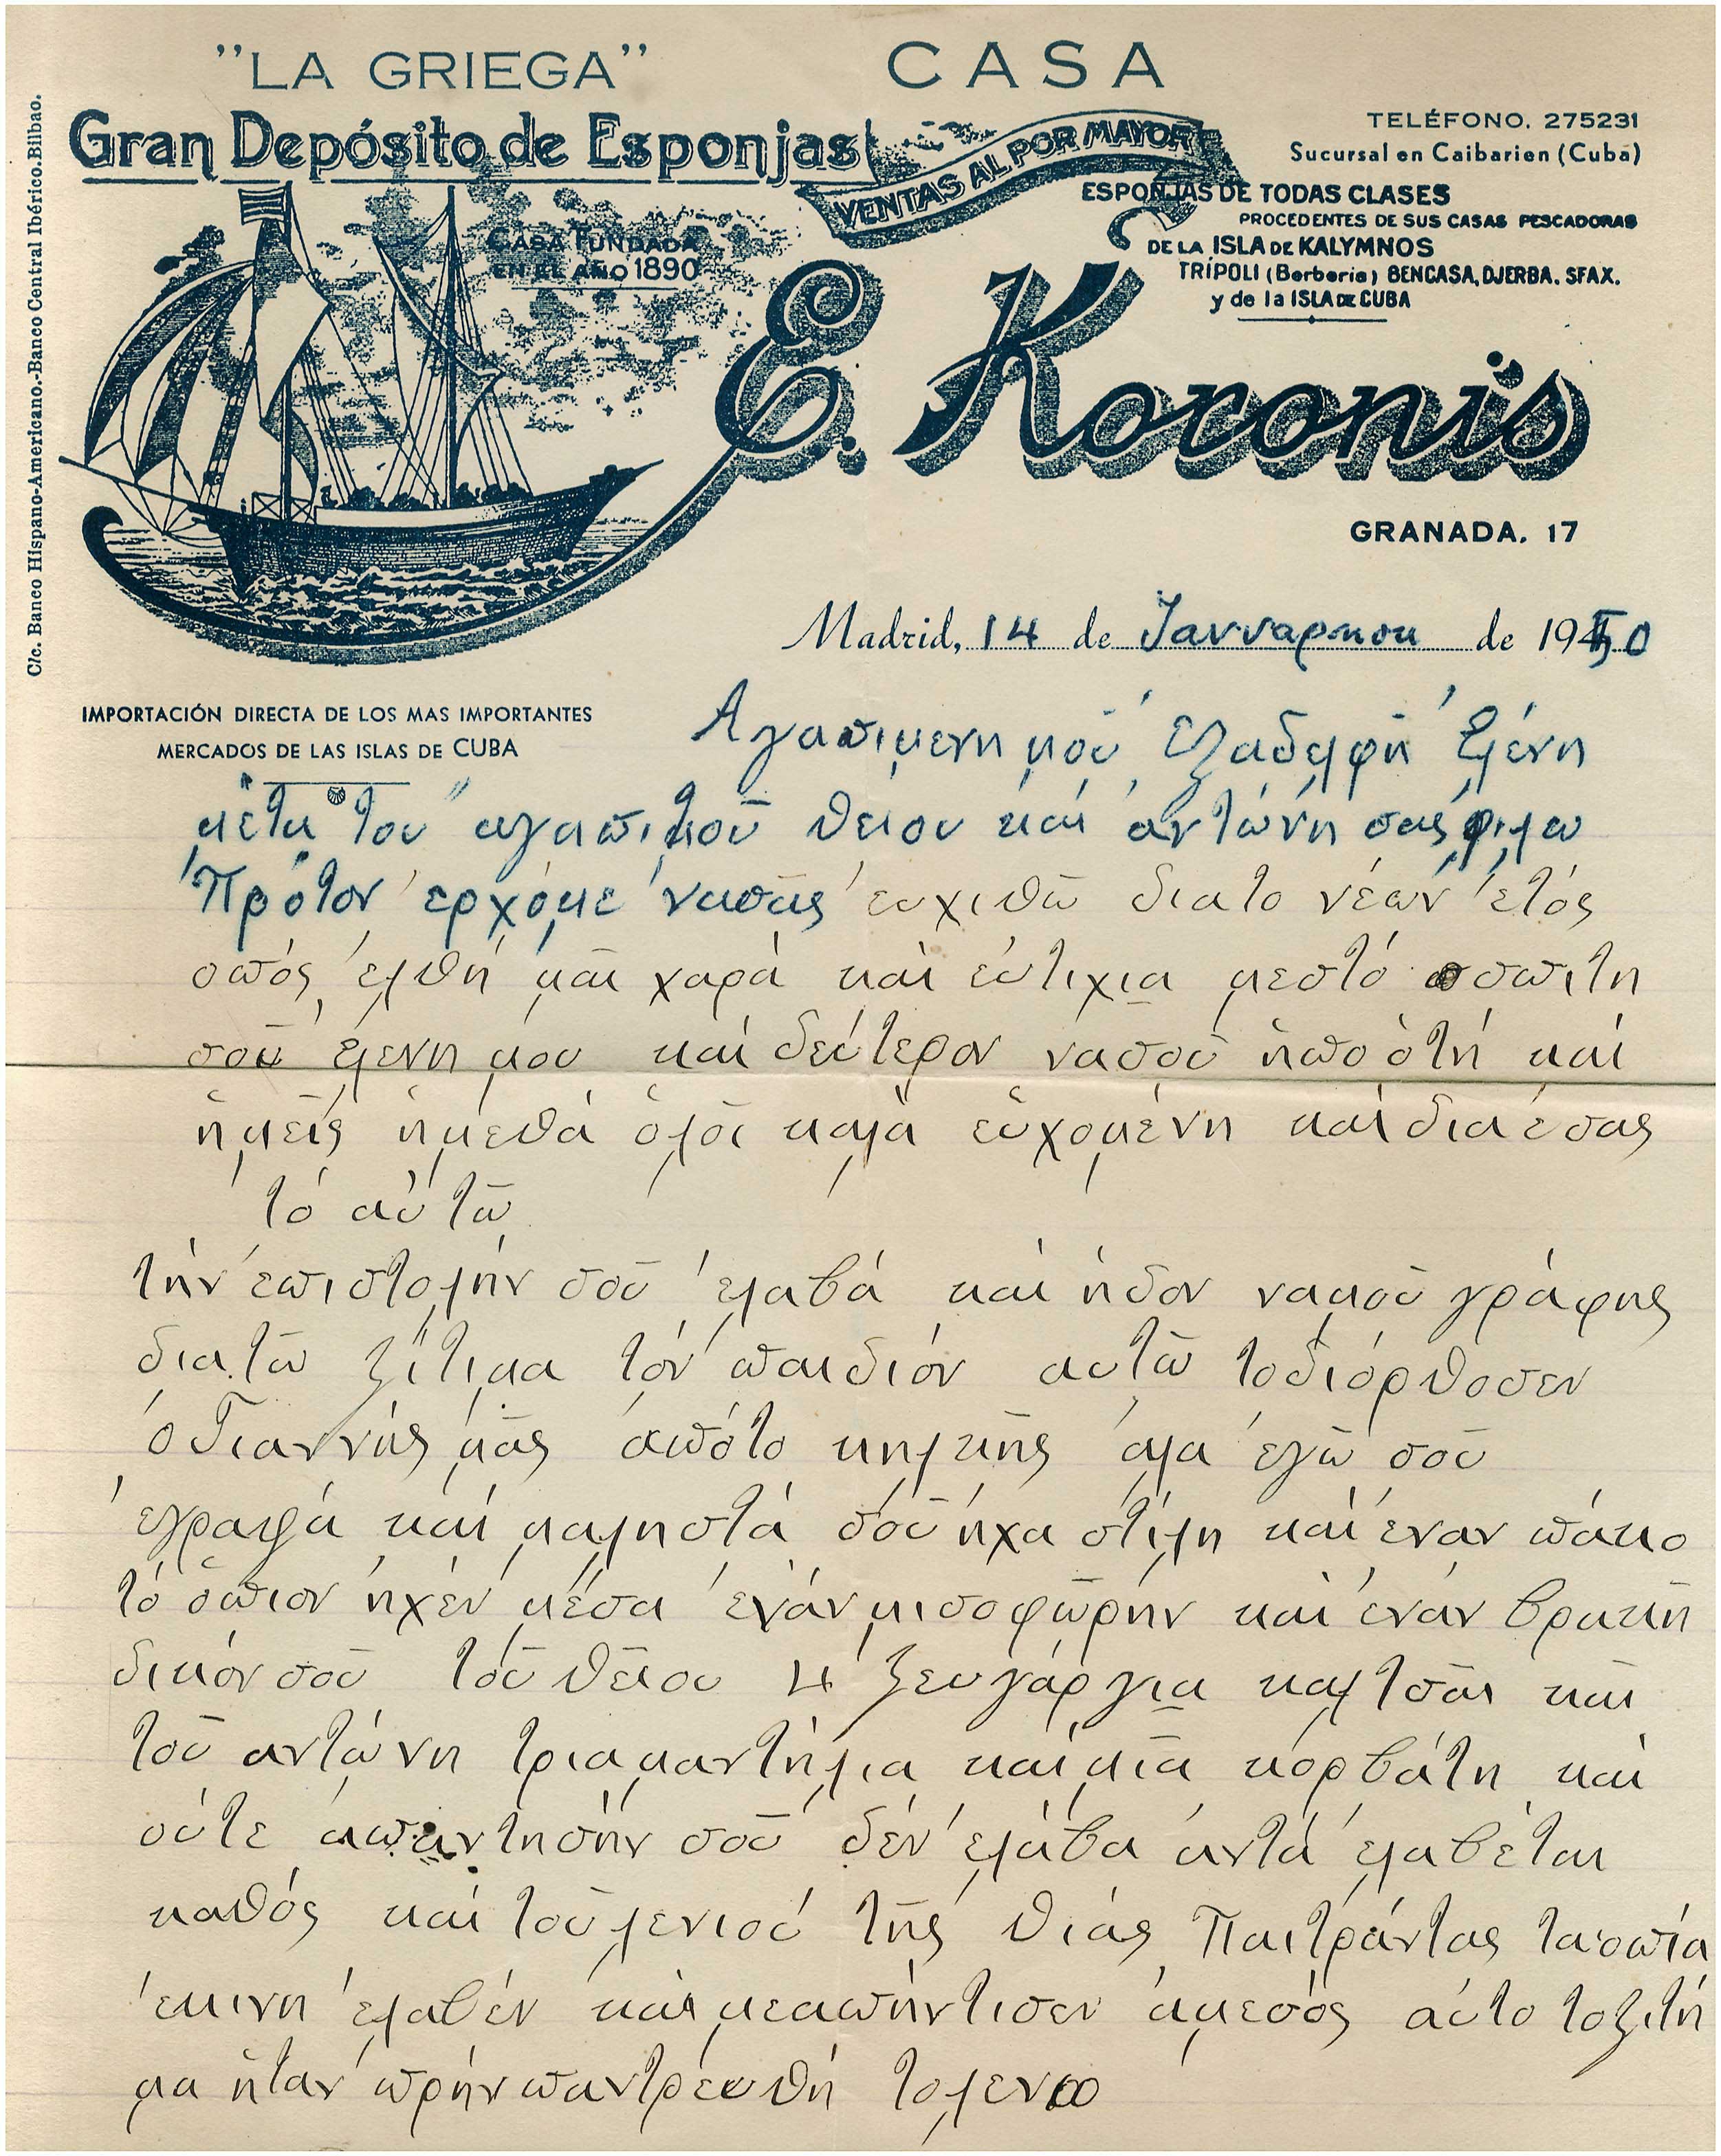 "LA GRIEGA" CASA
Gran Depósito de Esponjas
VENTAS AL POR MAYOR
TELÉFONO. 275231
Sucursal en Caibarien (Cuba)
ESPONJAS DE TODAS CLASES
PROCEDENTES DE SUS CASAS PESCADORAS
DE LA ISLA DE KALYMNOS
TRÍPOLI (Berberia) BENGASA, DJERBA. SFAX.
y de la ISLA DE CUBA
CASA FUNDADA
EN EL AÑO 1890
E. Koronis
GRANADA. 17
C/c. Banco HIspano-Americano.-Banco Central Ibérico.Bilbao.
Madrid, 14 de Ιανναρηου de 1950
IMPORTACIÓN DIRECTA DE LOS MAS IMPORTANTES
MERCADOS DE LAS ISLAS DE CUBA
Αγαπιμενη μού εξαδελφή Ελένη
μετα του αγαπιτού θειου καί αντώνη σας φιλω
Πρότον έρχόμε νασάς ευχιθώ διατο νέων έτός
οπός έλθή μαι χαρά καί εύτιχια μεστό σπιτη
σού ελενη μου καί δεύτερον νασού ήπό ότή καί
ήμείς ήμεθά όλοί καλά εύχομένη καί δια έσας
τό αύτώ
τήν έπιστολήν σού έλαβά καί ήδον ναμού γράφης
διατώ ζίτιμα τόν παιδιόν αυτώ τοδιόρθοσεν
ό Γιαννής μάς απότο κηλκής αλα έγώ σού
έγραψά καί μαληστά σού ήχα στίλη καί έναν πάκο
τό όπιον ήχέν μέσα ένάν μισοφώρην καί ένάν βρακή
δικόν σού τού θείου 4 ζευγάργια καλτσαι και
τού αντώνη τρια μαντήλια καί μία κορβάτη καί
ούτε άπαντησήν σού δέν έλάβα άντά έλαβέται
καθός καί τού λενιού τής θιάς Πατράντας τα οπία
έκινη έλαβέν καί μεαπήντισεν άμεσός αύτο τοζιτή
μα ήταν πρήν παντρευθή τολενιο